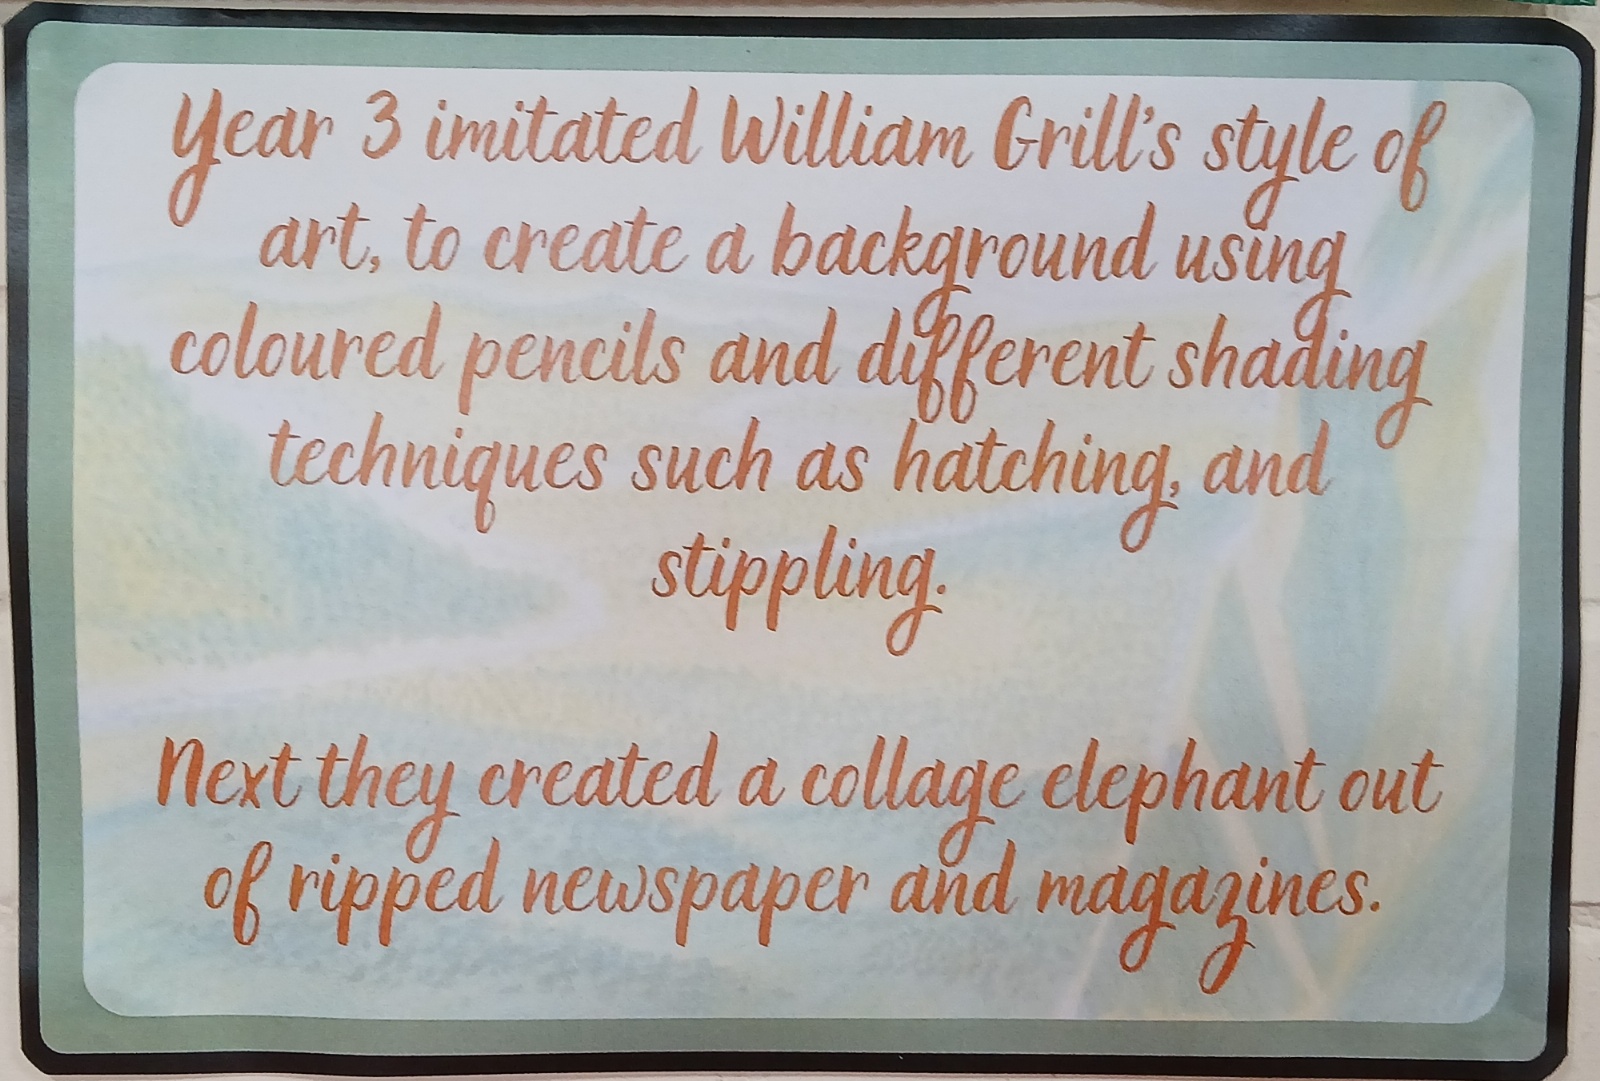 Year 3 imitated William Grill's style of
art, to create a background using
coloured pencils and different shading
techniques such as hatching, and
stippling.
Next they created a collage elephant out
of ripped newspaper and magazines.